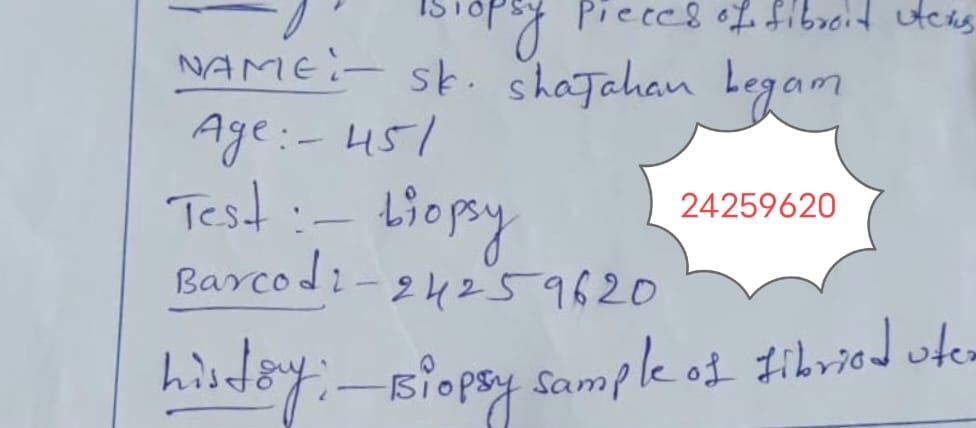 Biopsy Pieces of fibroid uterus
NAME:- sk. shaJahan begam
Age:- 45/
Test:- biopsy
24259620
Barcod:- 24259620
history:- Biopsy sample of fibriod uter